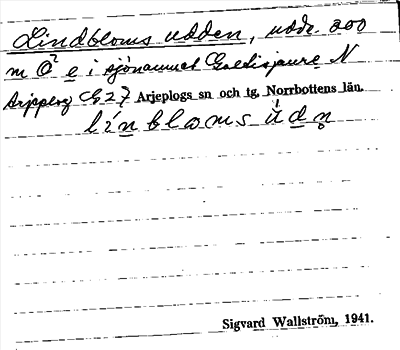 Lindbloms udden, udde. 200
m Ö² e i sjönamnet Galtisjaure N
Arjeplog C 27 Arjeplogs sn och tg, Norrbottens län.
línbloms údn̥
Sigvard Wallström, 1941.